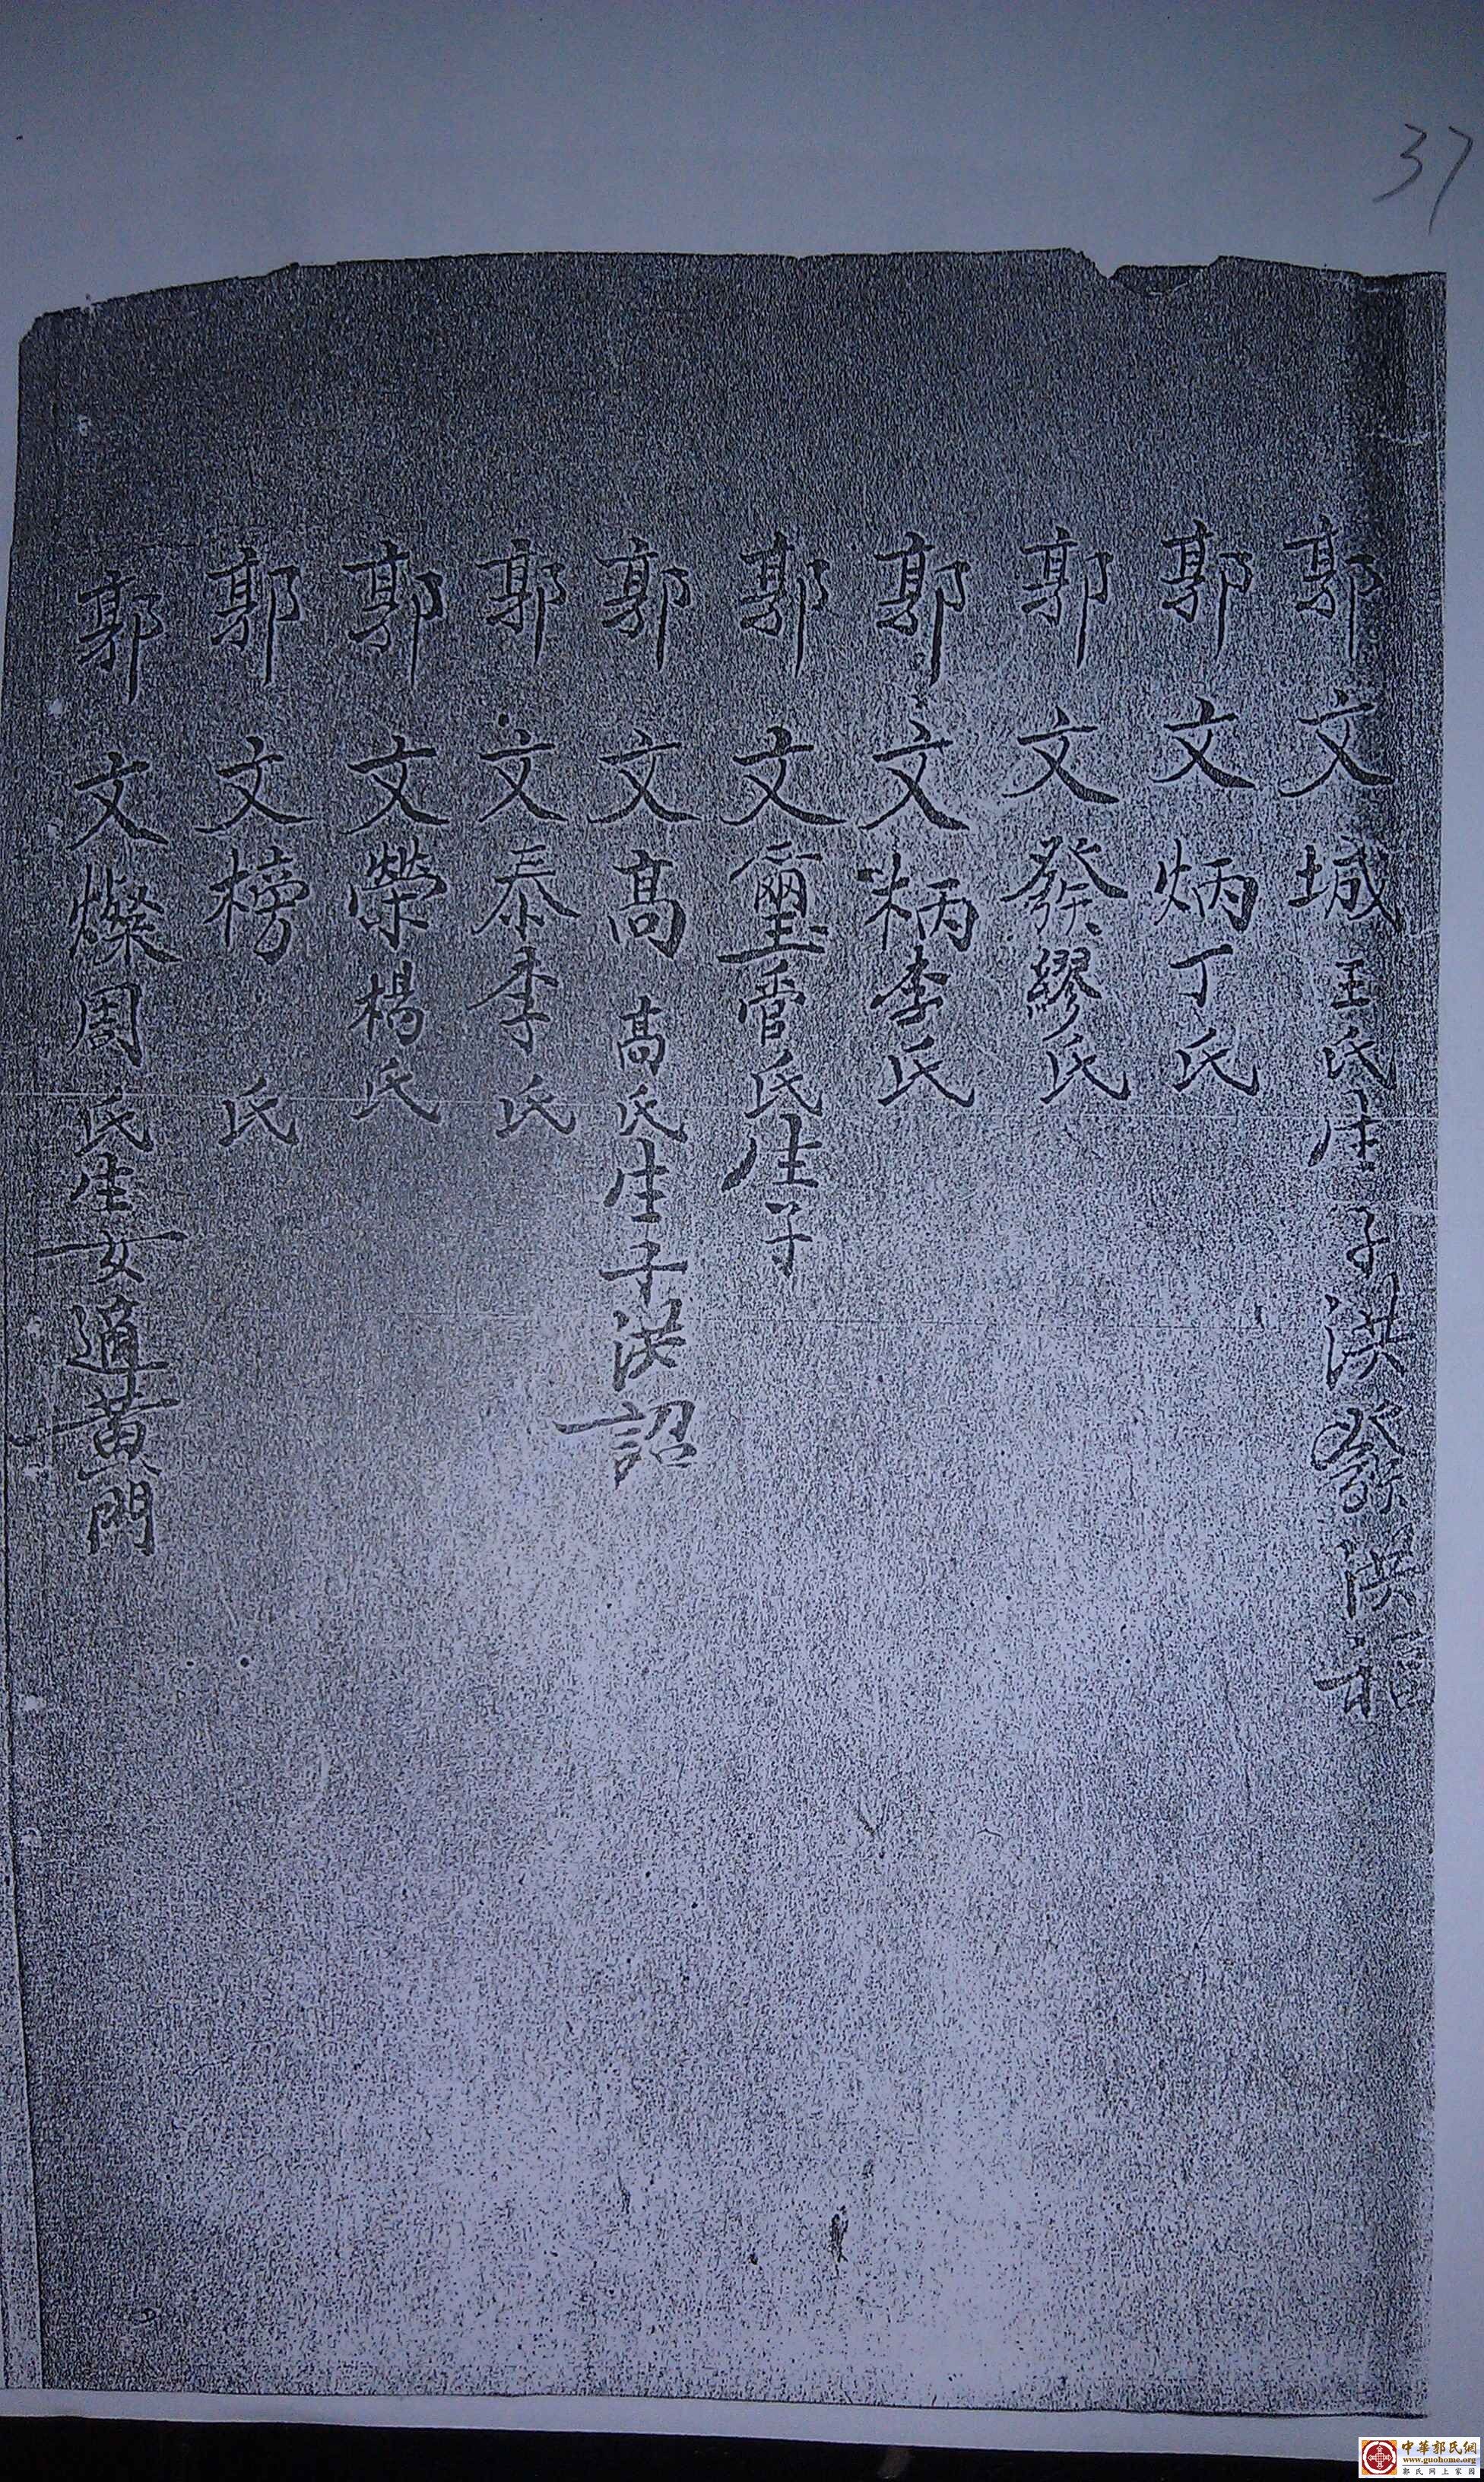 37
郭文城王氏生子洪發洪福
郭文炳丁氏
郭文發繆氏
郭文柄李氏
郭文璽管氏生子
郭文高高氏生子洪詔
郭文泰李氏
郭文榮楊氏
郭文榜 氏
郭文燦周氏生女適黃門
中華郭氏網
www.guohome.org
郭氏网上家园